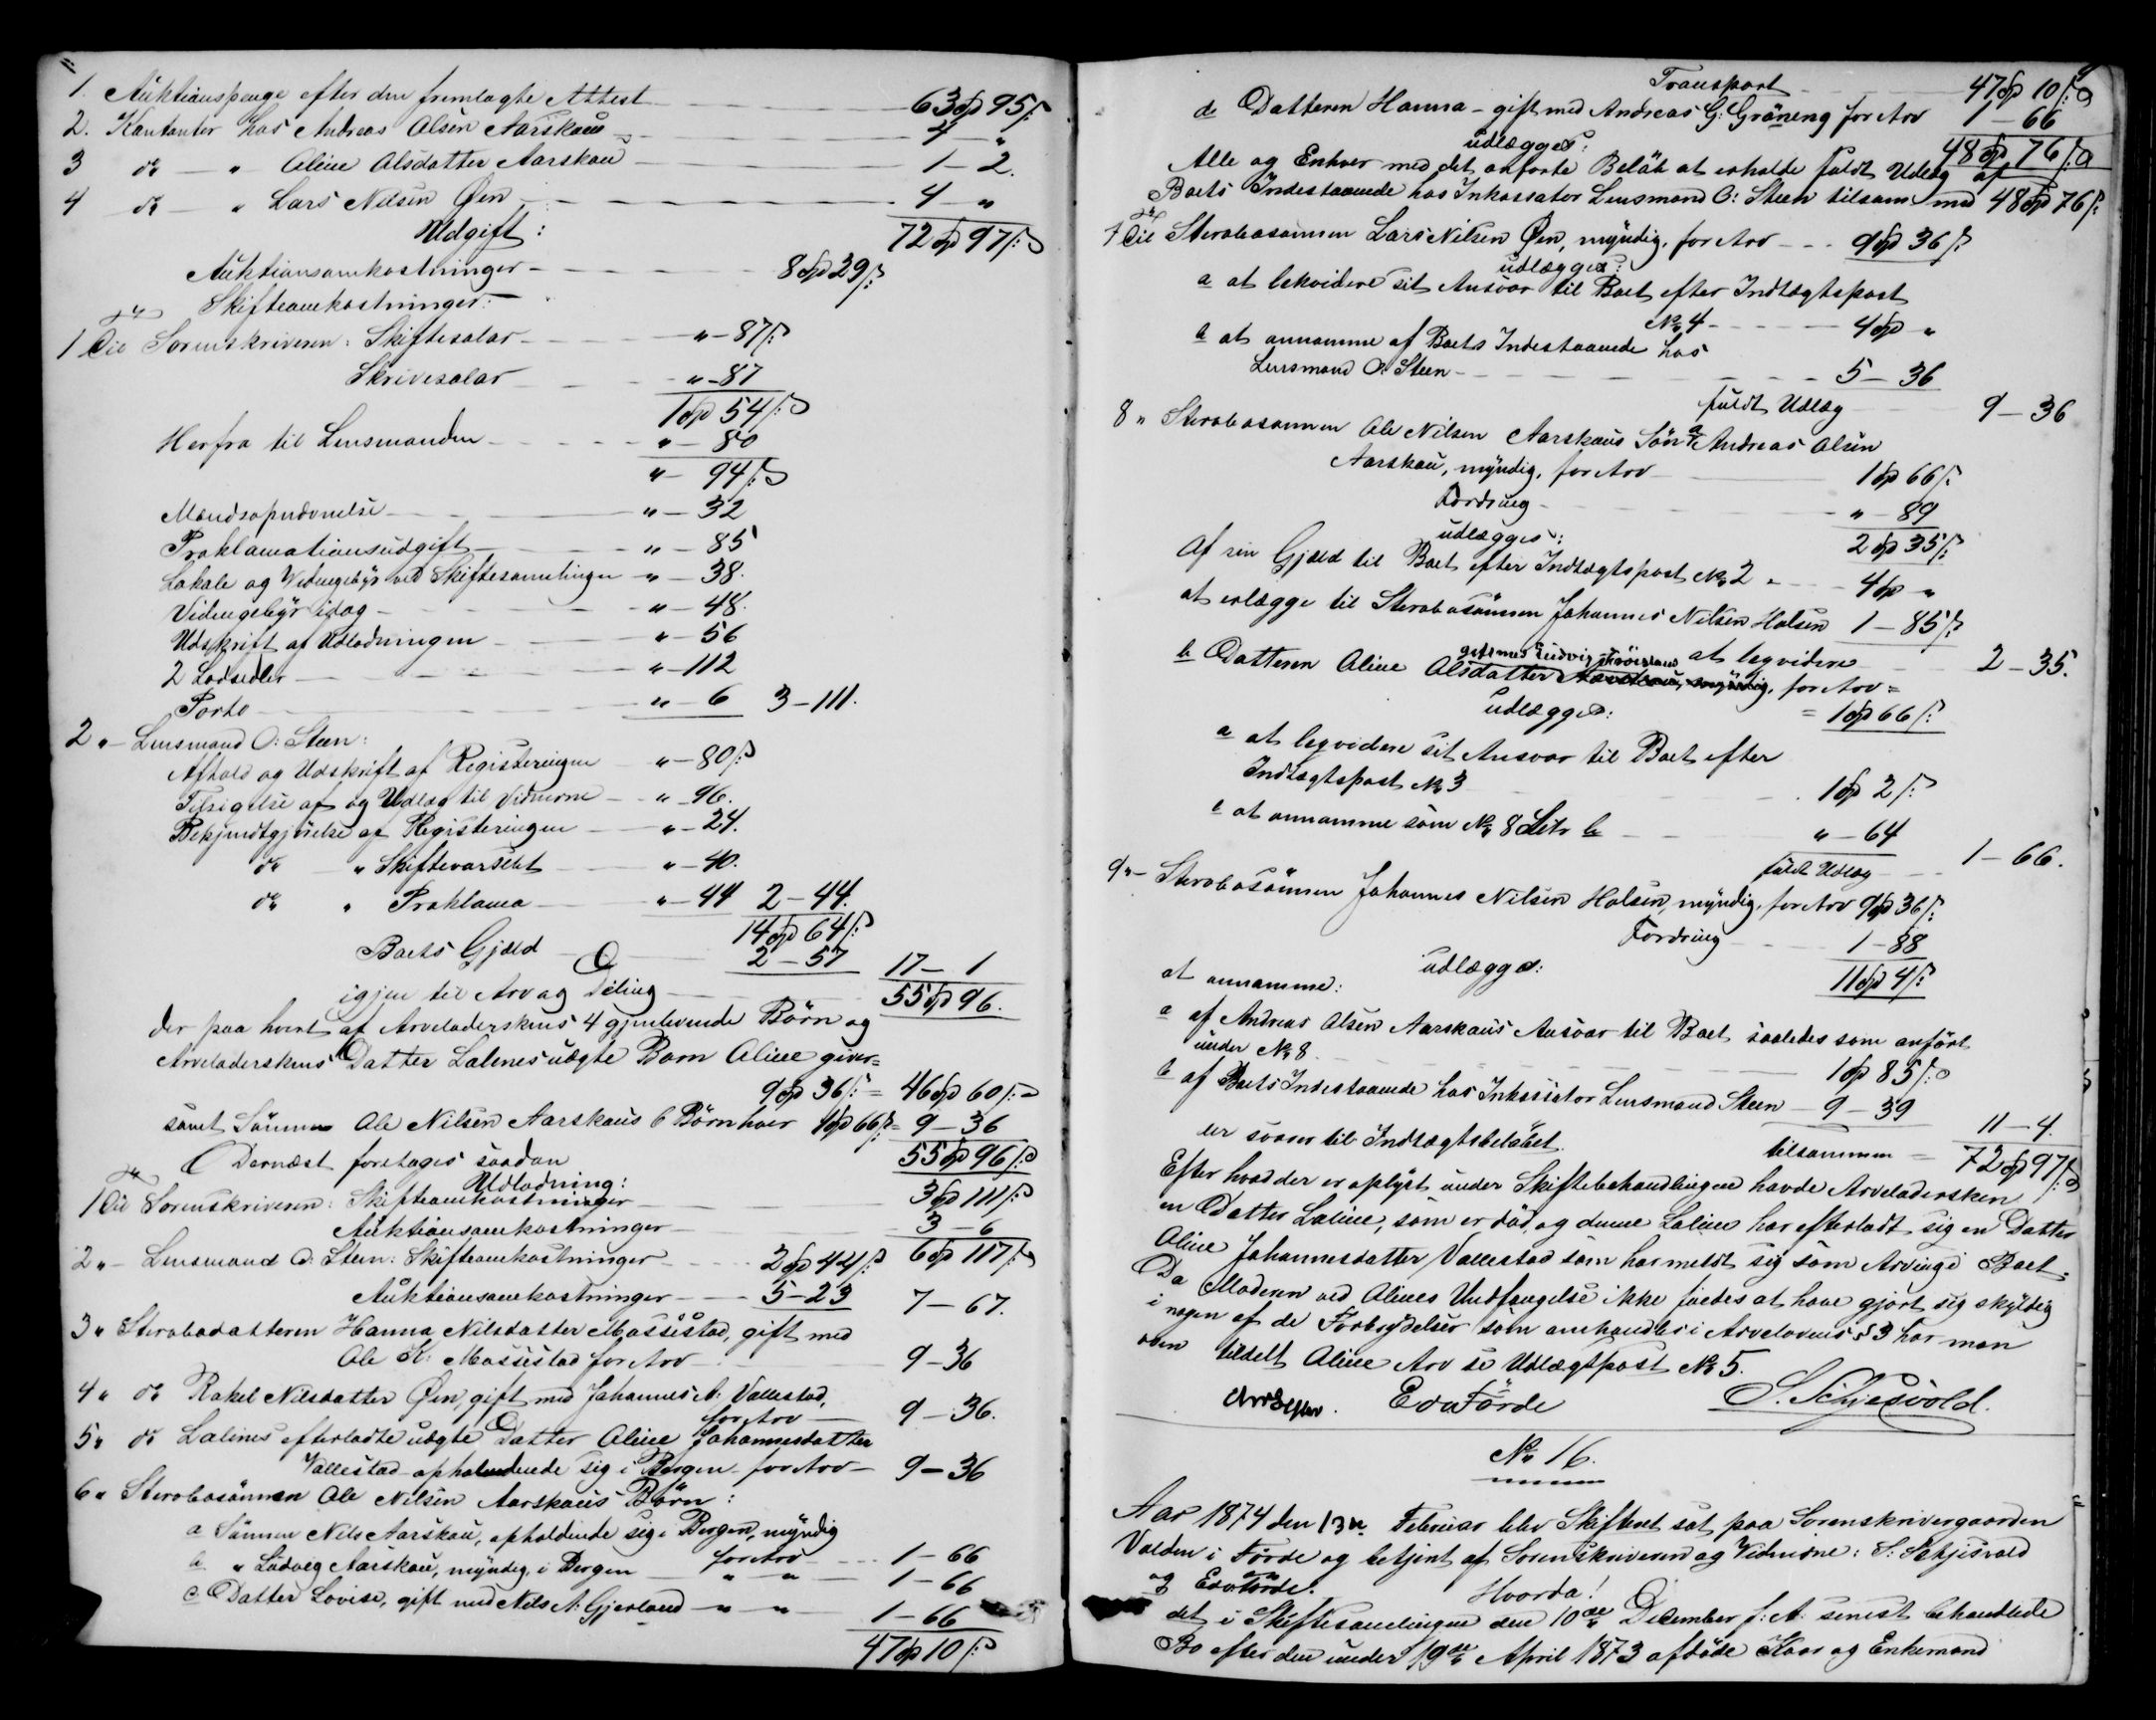 1. Auktionspenge efter den fremlagte Attest 63 Spd 95 ß
2. Kontanter hos Andreas Olsen Aarskau 4 — "
3 do — " Oline Olsdatter Aarskau 1 — 2.
4 do — " Lars Nilsen Øen 4 — "
72 Spd 97 ß
Udgift:
Auktionsomkostninger 8 Spd 29 ß
Skifteomkostninger:
1 Til Sorenskriveren: Skiftesalær " — 87 ß
Skrivesalær " — 87
1 Spd 54 ß
Herfra til Lensmanden " — 80
" — 94 ß
Mændsopnævnelse " — 32
Proklamationsudgift " — 85
Lokale og Vidnegebyr ved Skiftesamlingen " — 38.
Vidnegebyr idag " — 48.
Udskrift af Udlodningen " — 56
2 Lodsedler " — 112
Porto " — 6 3 — 111.
2 " — Lensmand O: Steen:
Afhold og Udskrift af Registeringen " — 80 ß
Tilsigelse af og Udlæg til Vidnerne " — 96.
Bekjendtgjørelse af Registeringen " — 24.
do " Skiftevarselet " — 40.
do " Proklama " — 44 2 — 44.
14 Spd 64 ß
Boets Gjæld 2 — 57 17 — 1
igjen til Arv og Deling 55 Spd 96.
der paa hvert af Arveladerskens 4 gjenlevende Børn og
Arveladerskens Datter Lalines uægte Barn Oline giver =
9 Spd 36 ß = 46 Spd 60 ß
samt Sønnen Ole Nilsen Aarskaus 6 Børn hver 1 Spd 66 ß = 9 — 36
Dernæst foretages saadan 55 Spd 96 ß
Udlodning:
1 Til Sorenskriveren: Skifteomkostninger 3 Spd 111 ß
Auktionsomkostninger 3 — 6
2 " — Lensmand O: Steen: Skifteomkostninger 2 Spd 44 ß 6 Spd 117 ß
Auktionsomkostninger 5 — 23 7 — 67.
3 " Stervbodatteren Hanna Nilsdatter Massestad, gift med
Ole K: Massestad for Arv 9 — 36
4 " do Rakel Nilsdatter Øen, gift med Johannes A: Vallestad,
for Arv 9 — 36.
5 " do Lalines efterladte uægte Datter Oline Johannesdatter
Vallestad opholdende sig i Bergen for Arv 9 — 36
6 " Stervbosønnen Ole Nilsen Aarskaus Børn:
a Sønnen Nils Aarskau, opholdende sig i Bergen, myndig
for Arv 1 — 66
b " Ludvig Aarskau, myndig, i Bergen " " 1 — 66
c Datter Lovise, gift med Nils N: Gjerland " " 1 — 66
47 Spd 10 ß
Transport 47 Spd 10 ß
d Datteren Hanna — gift med Andreas G: Grøneng for Arv 1 — 66
udlægges: 48 Spd 76 ß
Alle og Enhver med det anførte Beløb at erholde fuldt Udlæg af
Boets Indestaaende hos Inkassator Lensmand O: Steen tilsam. med 48 Spd 76 ß
7 Til Stervbosønnen Lars Nilsen Øen, myndig, for Arv 9 Spd 36 ß
udlægges:
a at likvidere sit Ansvar til Boet efter Indtægtspost
No 4 4 Spd "
b at annamme af Boets Indestaaende hos
Lensmand O: Steen 5 — 36
fuldt Udlæg 9 — 36
8 " Stervbosønnen Ole Nilsen Aarskaus Søn a Andreas Olsen
Aarskau, myndig, for Arv 1 Spd 66 ß
Fordring " — 89
udlægges: 2 Spd 35 ß
Af sin Gjæld til Boet efter Indtægtspost No 2 " 4 Spd "
at erlægge til Stervbosønnen Johannes Nilsen Halsen 1 — 85 ß
at leqvidere 2 — 35.
b Datteren Oline Olsdatter gift med Ludvig Frøisland for Arv =
udlægges: = 1 Spd 66 ß
a at leqvidere sit Ansvar til Boet efter
Indtægtspost No 3 1 Spd 2 ß
b at annamme som No 8 Litr b " — 64
fuldt Udlæg 1 — 66.
9 " — Stervbosønnen Johannes Nilsen Halsen, myndig, for Arv 9 Spd 36 ß
Fordring 1 — 88
udlægges: 11 Spd 4 ß
at annamme:
a af Andreas Olsen Aarskaus Ansvar til Boet saaledes som anført
under No 8 1 Spd 85 ß
b af Boets Indestaaende hos Inkassator Lensmand Steen 9 — 39
11 — 4.
der svarer til Indtægtsbeløbet. tilsammen = 72 Spd 97 ß
Efter hvad der er oplyst under Skiftebehandlingen havde Arveladersken
en Datter Laline, som er død, og denne Laline har efterladt sig en Datter
Oline Johannesdatter Vallestad som har meldt sig som Arving i Boet.
Da Moderen ved Olines Undfangelse ikke saaedes at have gjort sig skyldig
i nogen af de Forbrydelser som omhandles i Arvelovens § 3 har man
oven tildelt Oline Arv se Udlægspost No 5.
Edv Førde S. Schjesvold.
No 16.
Aar 1874 den 13de Februar blev Skifteret sat paa Sorenskrivergaarden
Valden i Førde og betjent af Sorenskriveren og Vidnerne: S: Schjisvold
og Edv Førde.
Hvorda!
det i Skiftesamlingen den 10de December f: A: senest behandlede
Bo efter den under 19de April 1873 afdøde Kaar og Enkemand